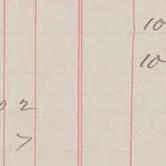 10
10
02
7